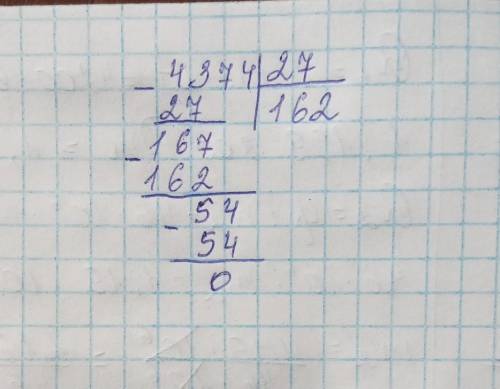 - 4374 | 27
27 | 162
- 167
162
- 54
54
0